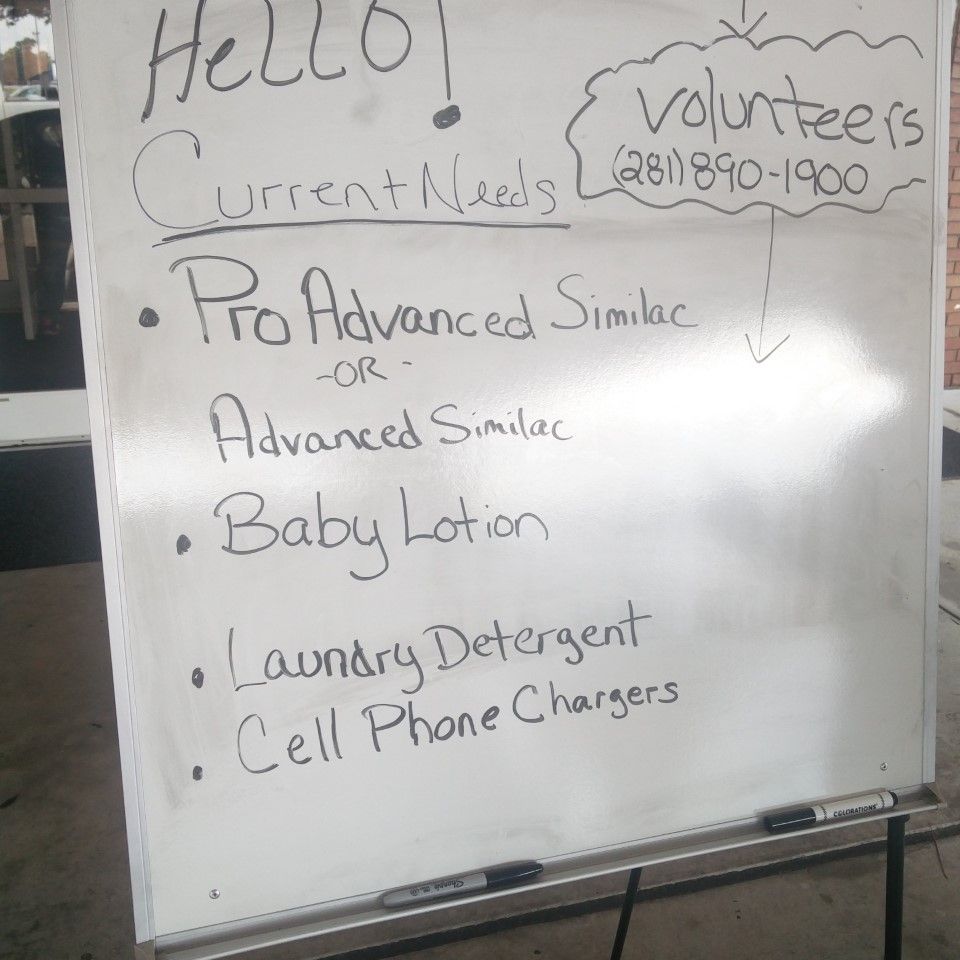 HELLO!
volunteers
(281) 890-1900
Current Needs
• Pro Advanced Similac
-OR-
Advanced Similac
• Baby Lotion
• Laundry Detergent
• Cell Phone Chargers
COLORATIONS
Sharpie